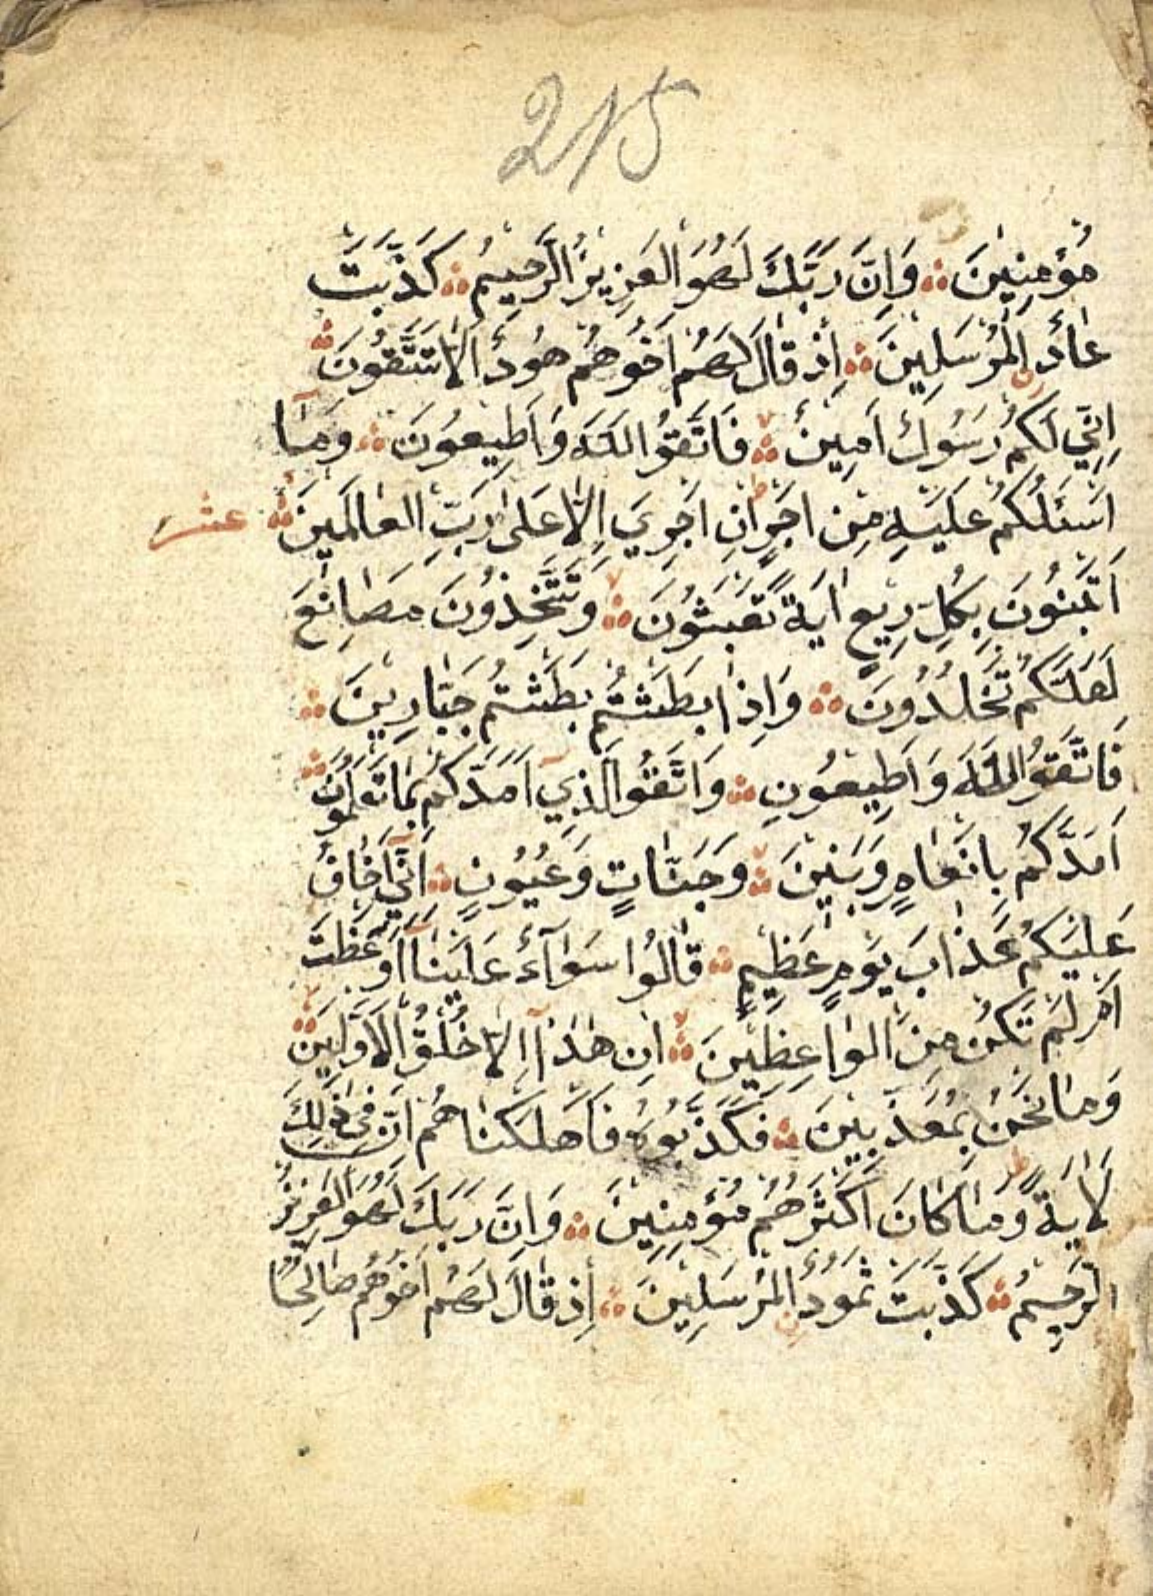 215
مُؤْمِنِينَ ۞ وَاِنَّ رَبَّكَ لَهُوَ الْعَزِيزُ الرَّحِيمُ ۞ كَذَّبَتْ
عَادُ الْمُرْسَلِينَ ۞ اِذْ قَالَ لَهُمْ اَخُوهُمْ هُودٌ اَلَا تَتَّقُونَ ۞
اِنِّي لَكُمْ رَسُولٌ اَمِينٌ ۞ فَاتَّقُوا اللّٰهَ وَاَطِيعُونَ ۞ وَمَآ
اَسْئَلُكُمْ عَلَيْهِ مِنْ اَجْرٍ اِنْ اَجْرِيَ اِلَّا عَلٰى رَبِّ الْعَالَمِينَ ۞ عشر
اَتَبْنُونَ بِكُلِّ رِيعٍ اٰيَةً تَعْبَثُونَ ۞ وَتَتَّخِذُونَ مَصَانِعَ
لَعَلَّكُمْ تَخْلُدُونَ ۞ وَاِذَا بَطَشْتُمْ بَطَشْتُمْ جَبَّارِينَ ۞
فَاتَّقُوا اللّٰهَ وَاَطِيعُونِ ۞ وَاتَّقُوا الَّذِيٓ اَمَدَّكُمْ بِمَا تَعْلَمُونَ ۞
اَمَدَّكُمْ بِاَنْعَامٍ وَبَنِينَ ۞ وَجَنَّاتٍ وَعُيُونٍ ۞ اِنِّيٓ اَخَافُ
عَلَيْكُمْ عَذَابَ يَوْمٍ عَظِيمٍ ۞ قَالُوا سَوَآءٌ عَلَيْنَآ اَوَعَظْتَ
اَمْ لَمْ تَكُنْ مِنَ الْوَاعِظِينَ ۞ اِنْ هٰذَآ اِلَّا خُلُقُ الْاَوَّلِينَ ۞
وَمَا نَحْنُ بِمُعَذَّبِينَ ۞ فَكَذَّبُوهُ فَاَهْلَكْنَاهُمْ اِنَّ فِي ذٰلِكَ
لَاٰيَةً ط وَمَا كَانَ اَكْثَرُهُمْ مُؤْمِنِينَ ۞ وَاِنَّ رَبَّكَ لَهُوَ الْعَزِيزُ
الرَّحِيمُ ۞ كَذَّبَتْ ثَمُودُ الْمُرْسَلِينَ ۞ اِذْ قَالَ لَهُمْ اَخُوهُمْ صَالِحٌ